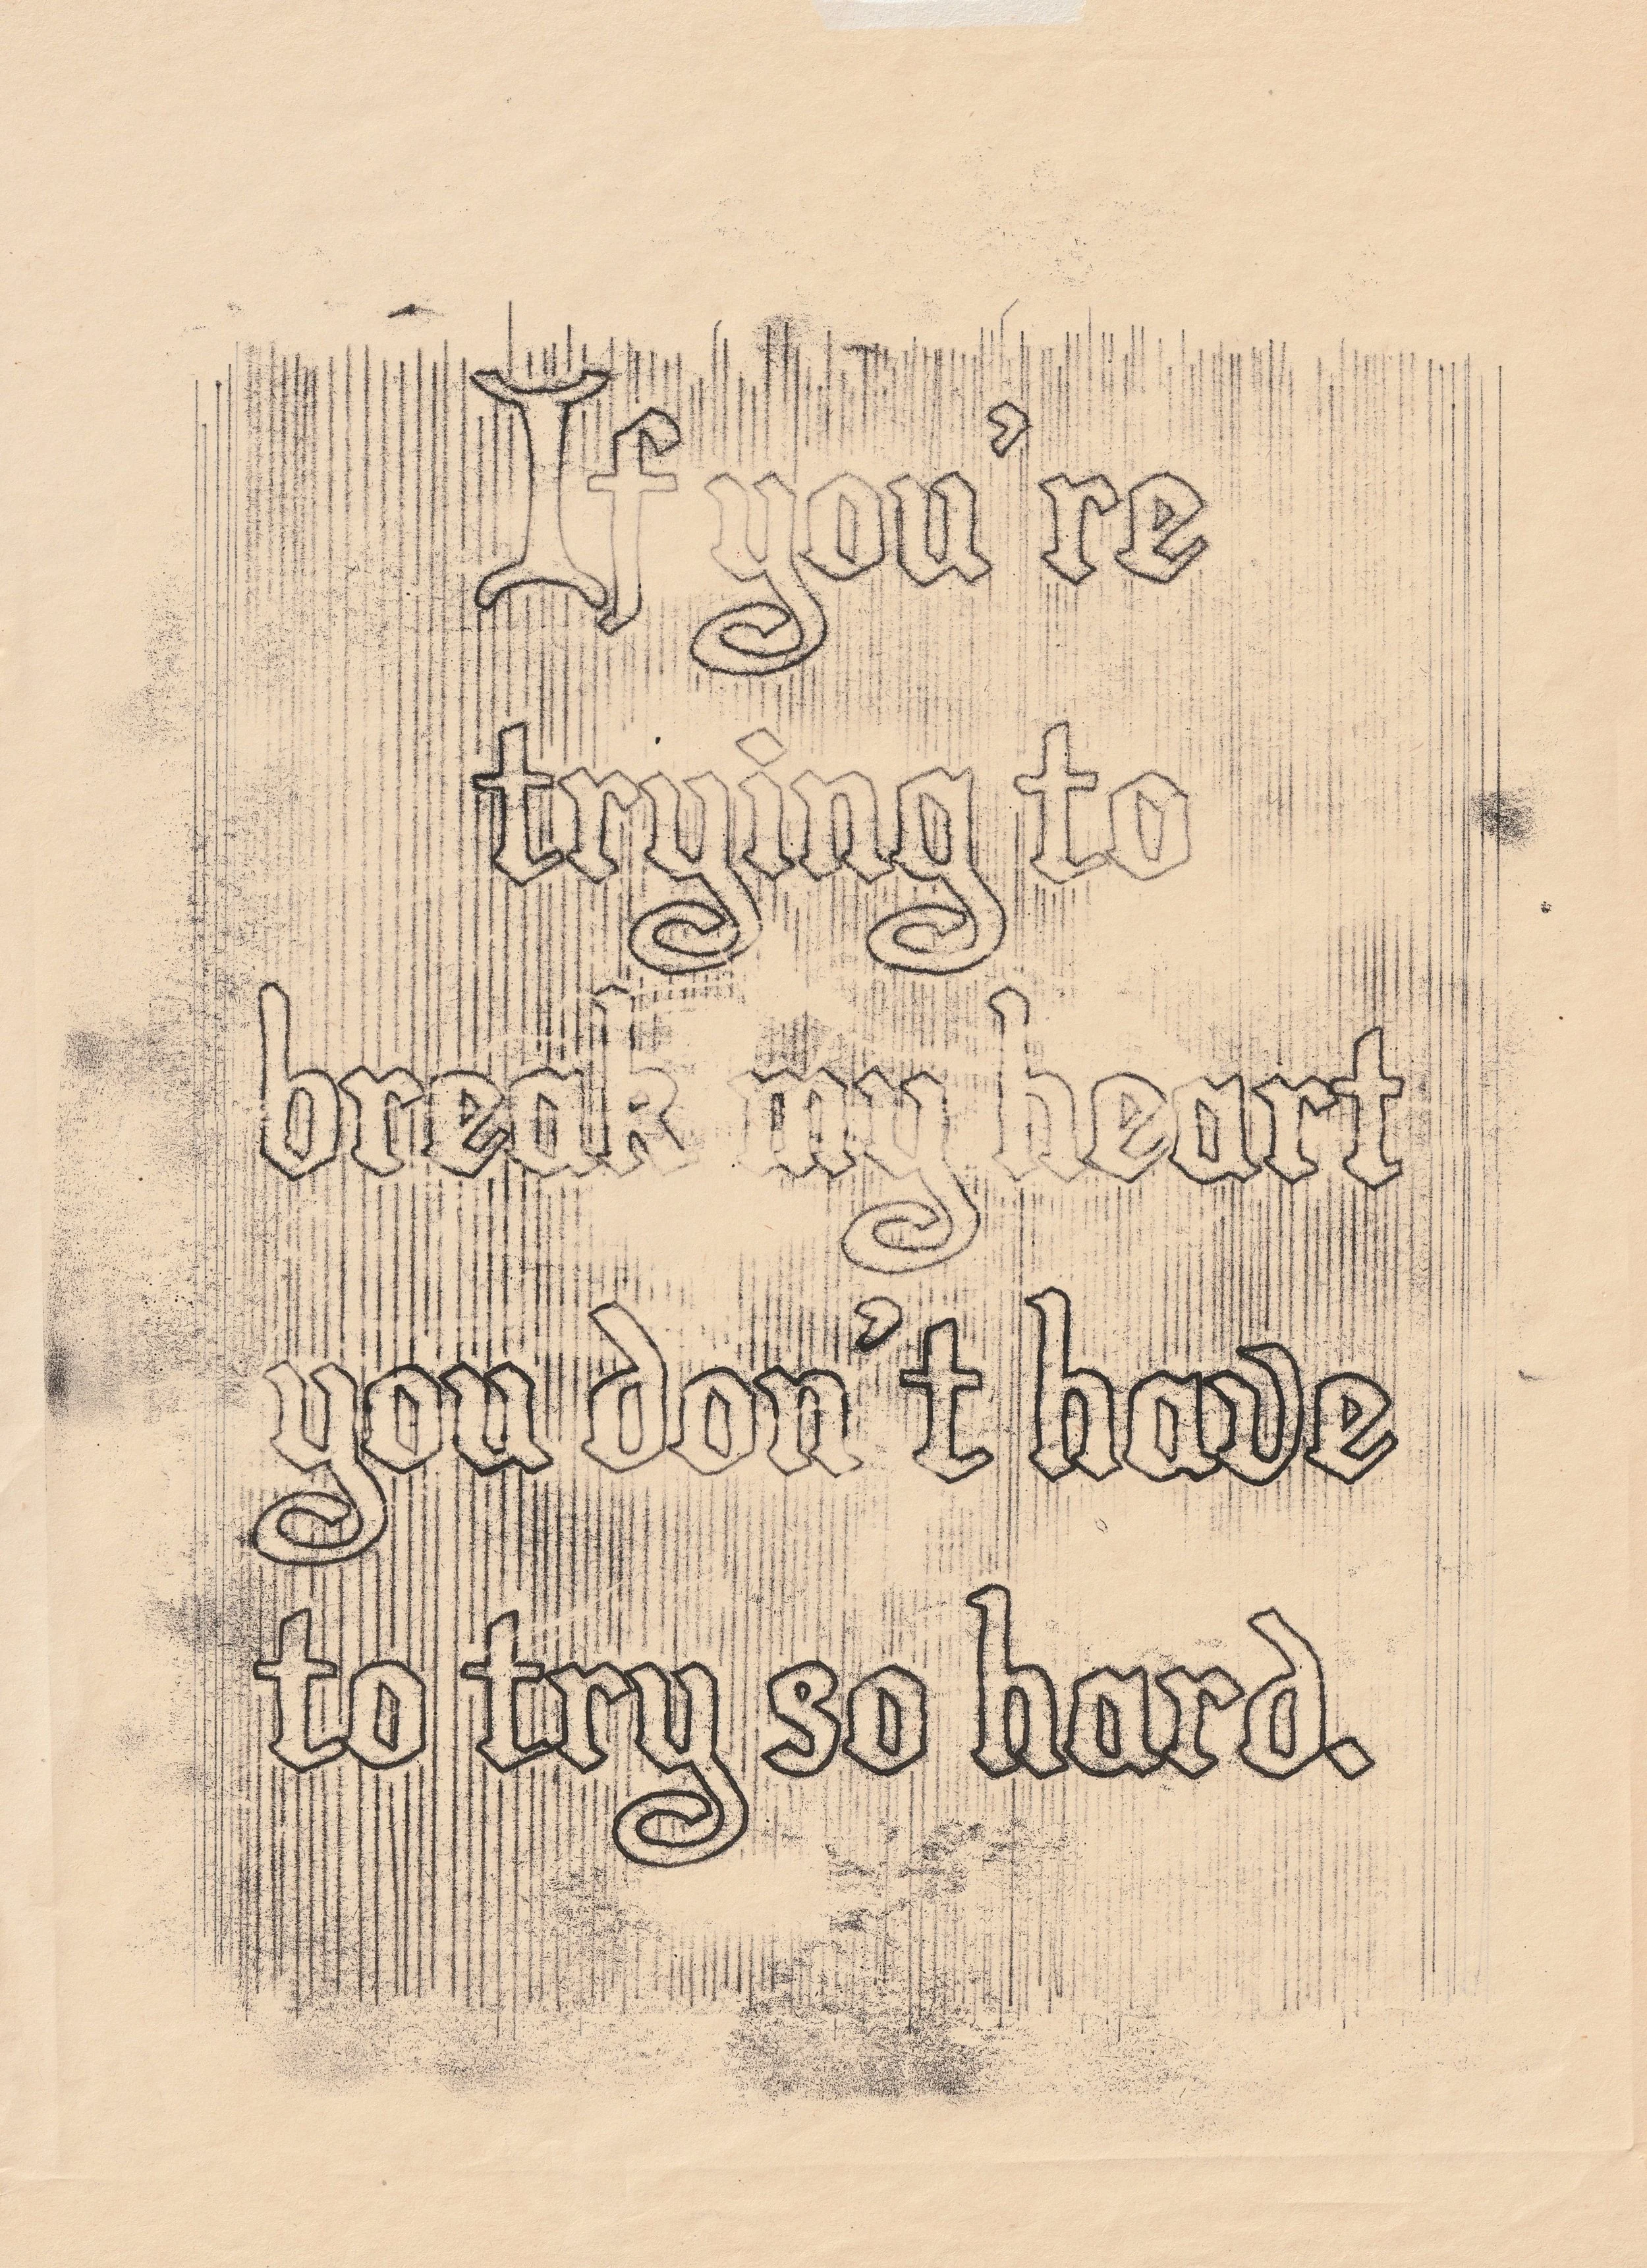 If you're
trying to
break my heart
you don't have
to try so hard.